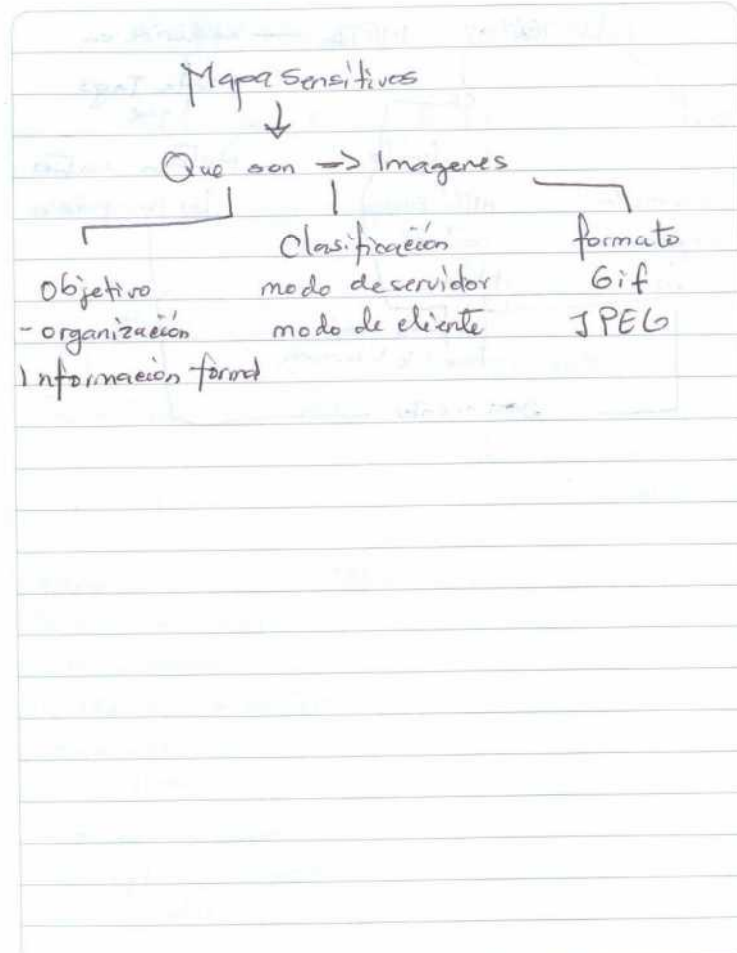 Mapa Sensitivos
Que son -> Imagenes
Objetivo
- organización
Información formal
Clasificación
modo de servidor
modo de cliente
formato
Gif
JPEG